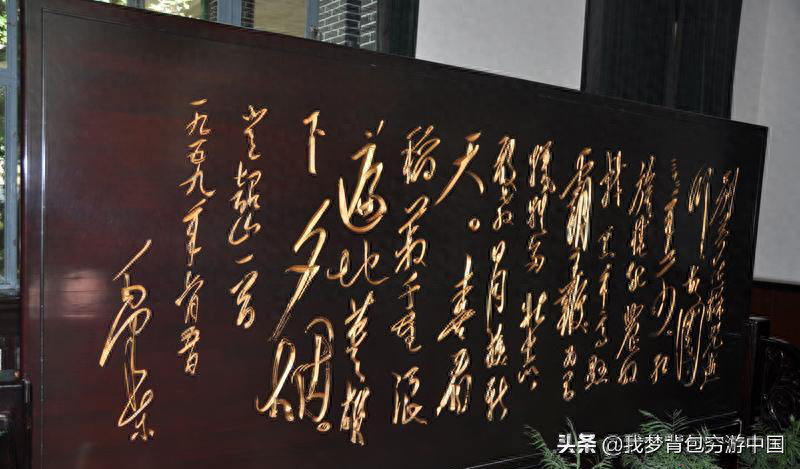 别梦依稀咒逝
川故园
三十二年前红
旗
黑手高悬
霸主鞭为有
牺牲多壮志
敢教日月换新
天。喜看
稻菽千重浪
遍地英雄
下夕烟。
韶山一首
一九五九年
毛泽东
头条 @我梦背包穷游中国